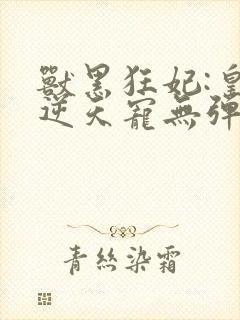 獸黑狂妃:皇
逆天寵無彈
青絲染霜